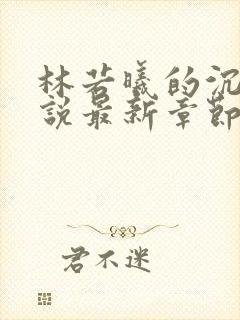 林若曦的沉
說最新章節
君不迷